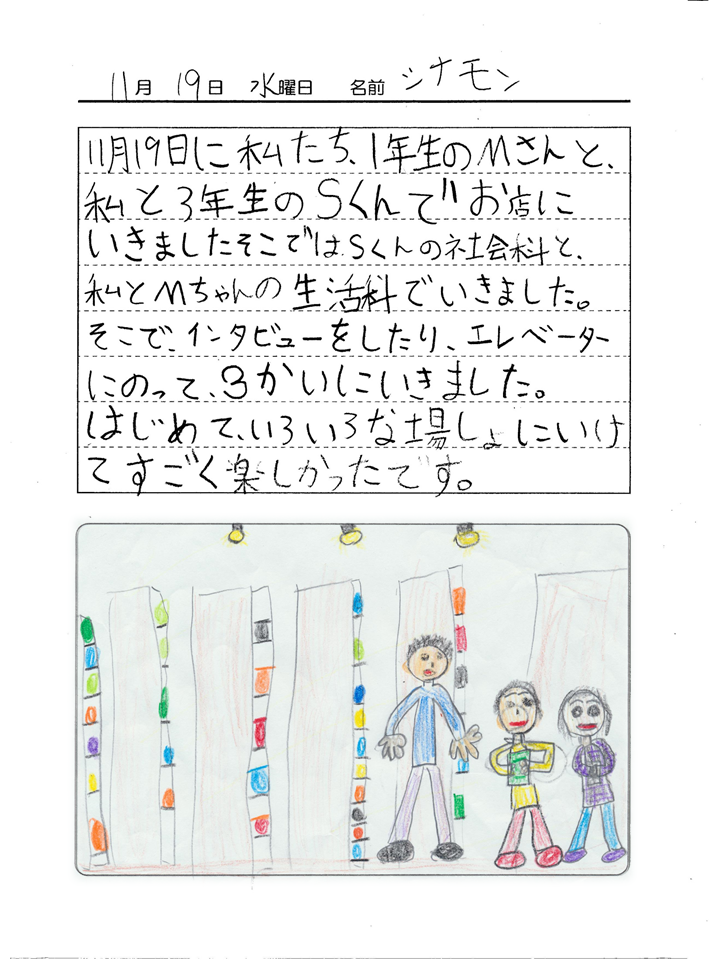 11月 19日 水曜日 名前 シナモン
11月19日に私たち、1年生のMさんと、
私と3年生のSくんでお店に
いきましたそこではSくんの社会科と、
私とMちゃんの生活科でいきました。
そこで、インタビューをしたり、エレベーター
にのって、3かいにいきました。
はじめて、いろいろな場しょにいけ
てすごく楽しかったです。